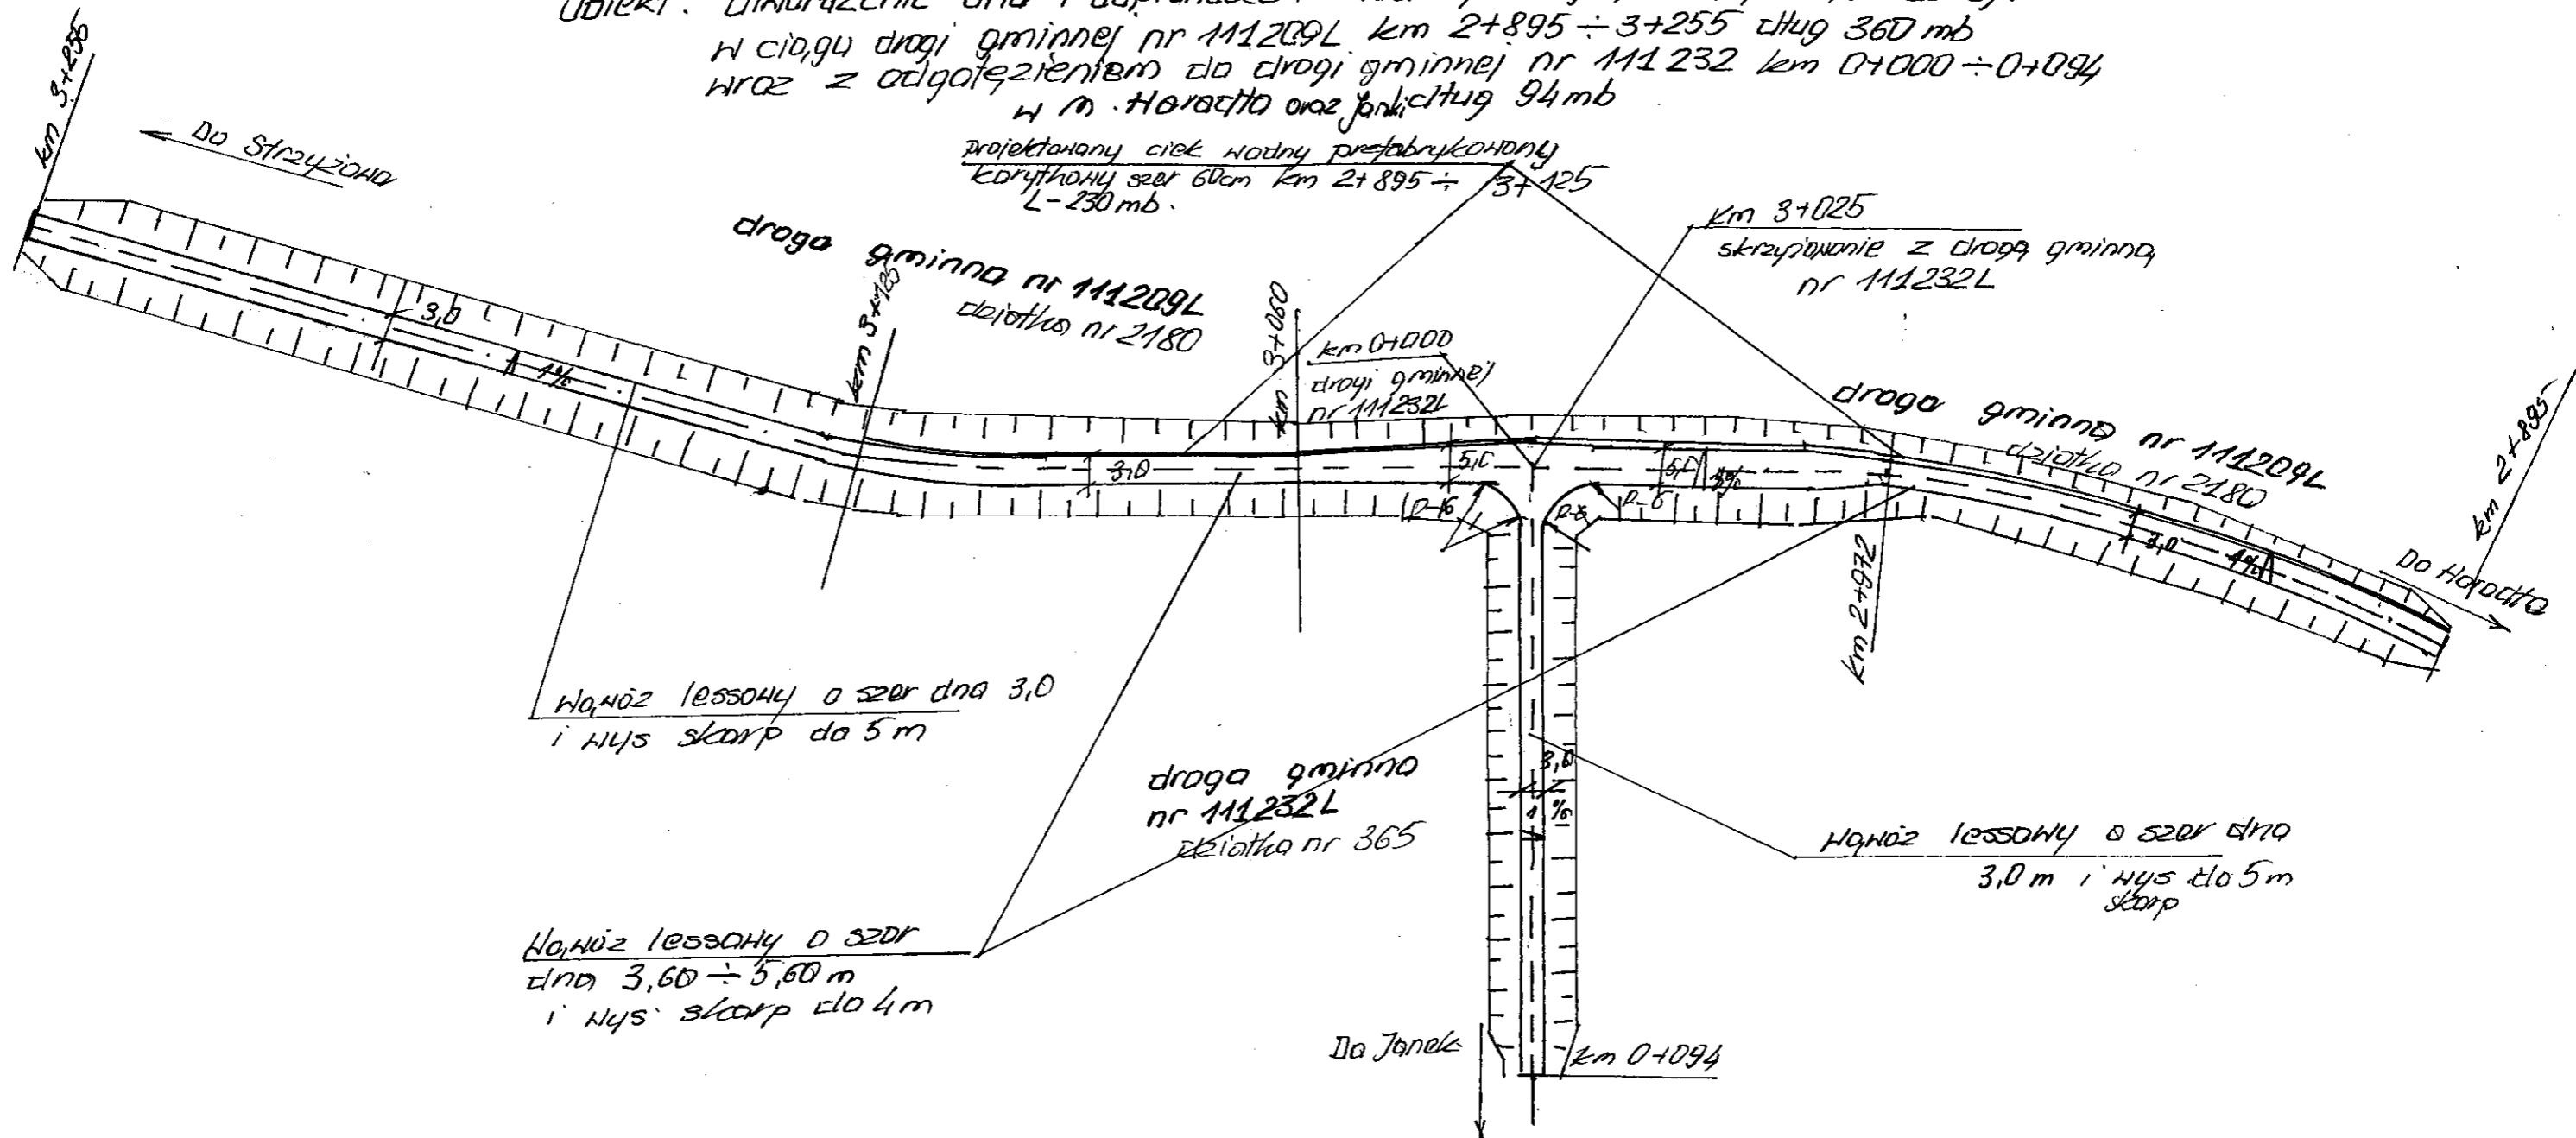 Obiekt:
w ciągu drogi gminnej nr 111209L km 2+895 ÷ 3+255 dług 360 mb
wraz z odgałęzieniem do drogi gminnej nr 111232 km 0+000 ÷ 0+094
w m. Horodło oraz Janki dług 94 mb
km 3+255
Do Strzyżowa
projektowany ciek wodny prefabrykowany
korytkowy szer 60cm km 2+895 ÷ 3+125
L-230 mb.
km 3+025
skrzyżowanie z drogą gminną
nr 111232L
droga gminna nr 111209L
działka nr 2180
km 3+125
km 3+060
km 0+000
drogi gminnej
nr 111232L
droga gminna nr 111209L
działka nr 2180
km 2+895
Do Horodła
3,0
1%
3,0
5,0
5,0
R-6
R-6
3,0
1%
km 2+972
Wąwóz lessowy o szer dna 3,0
i wys skarp do 5m
droga gminna
nr 111232L
działka nr 365
3,0
1%
Wąwóz lessowy o szer dna
3,0 m i wys do 5m
skarp
Wąwóz lessowy o szer
dna 3,60 ÷ 5,60 m
i wys skarp do 4m
Do Janek
km 0+094